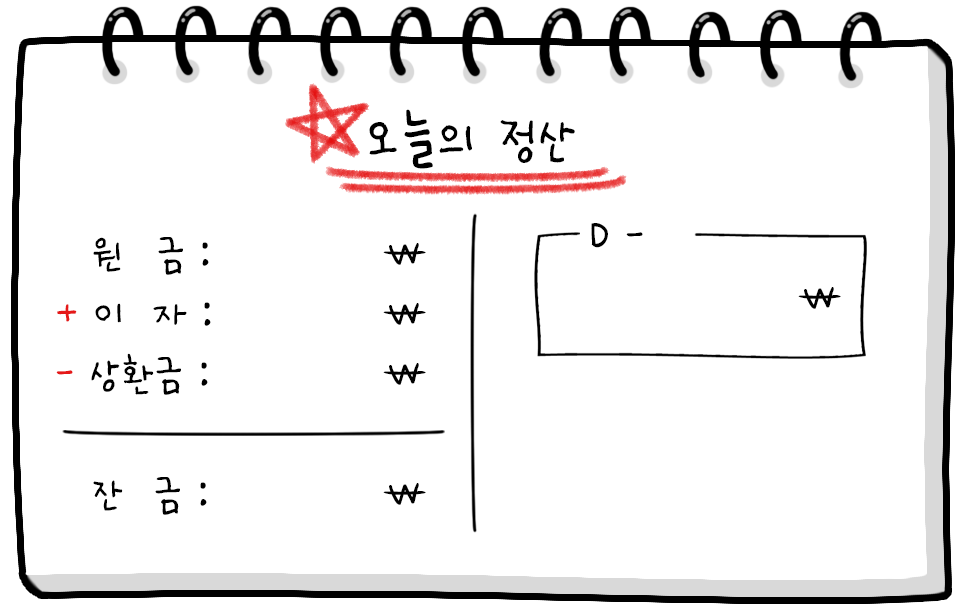 오늘의 정산
원 금 : ₩
+ 이 자 : ₩
- 상환금 : ₩
잔 금 : ₩
D -
₩